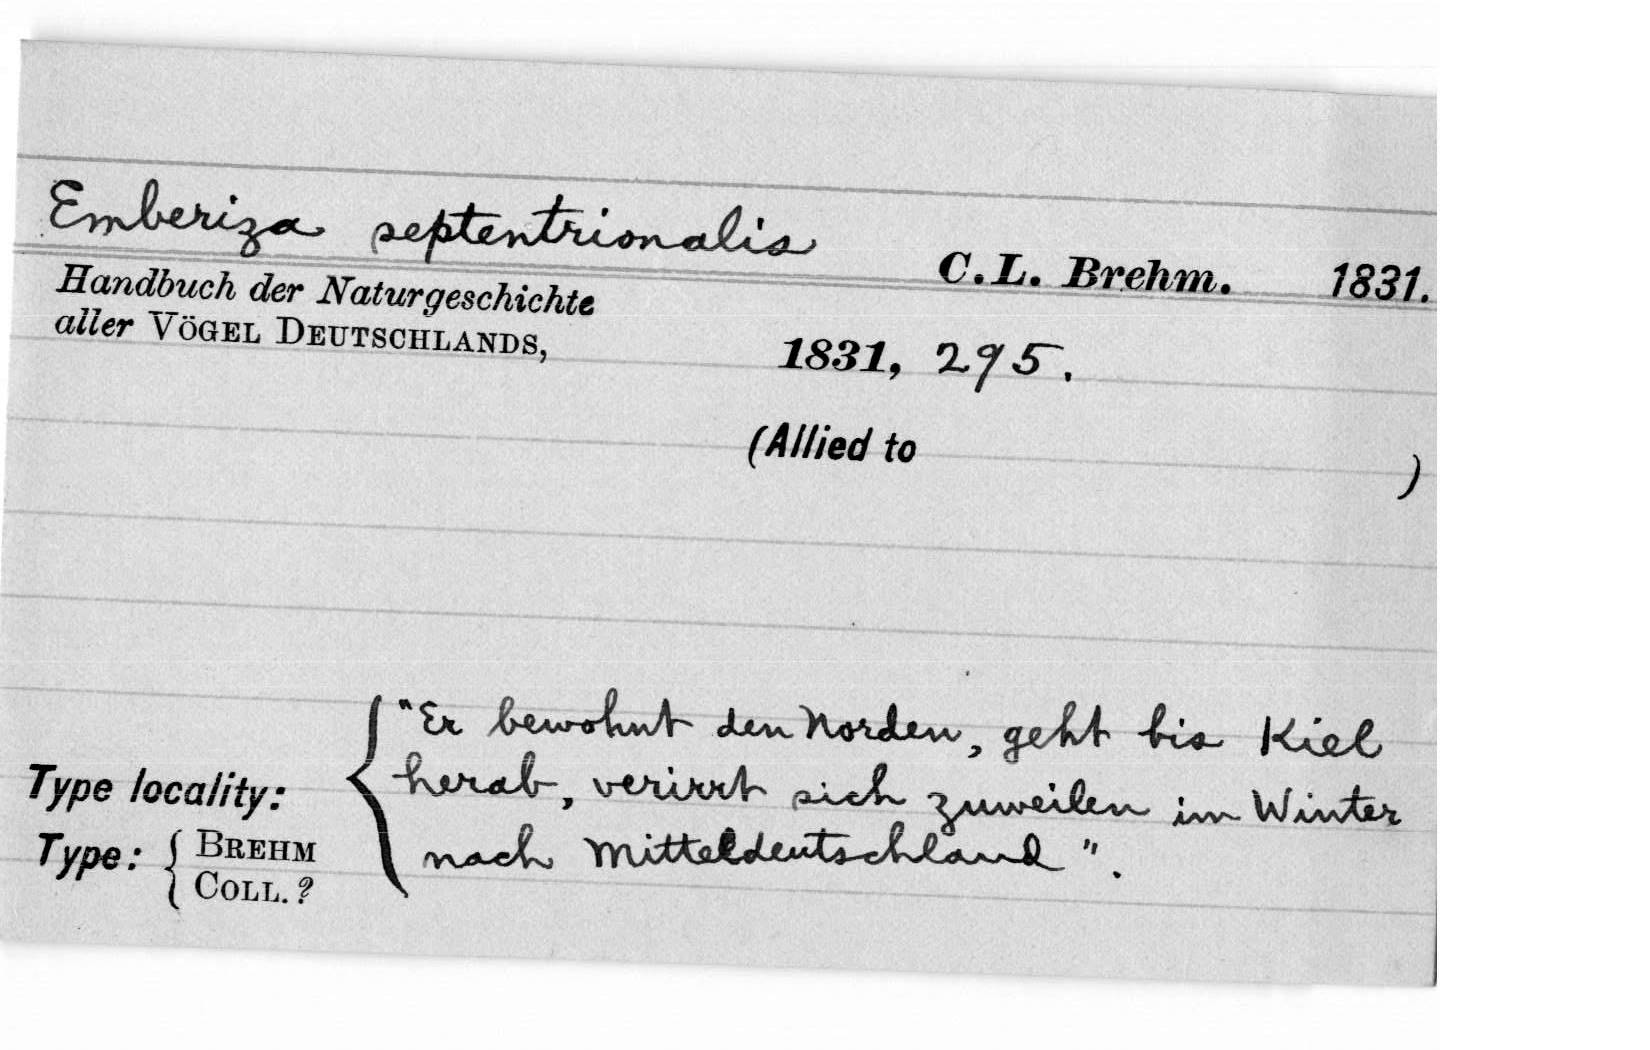 Emberiza septentrionalis C.L. Brehm. 1831.
Handbuch der Naturgeschichte
aller VÖGEL DEUTSCHLANDS, 1831, 295.
(Allied to )
"Er bewohnt den Norden, geht bis Kiel
Type locality: herab, verirrt sich zuweilen im Winter
Type: BREHM COLL.? nach Mitteldeutschland".